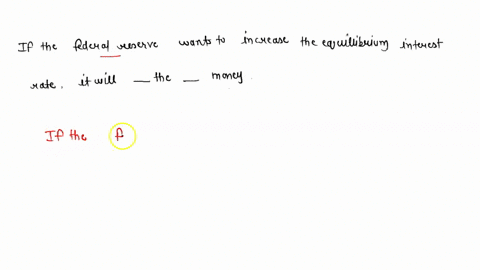 If the federal reserve wants to increase the equilibrium interest
rate, it will __ the __ money.
If the f